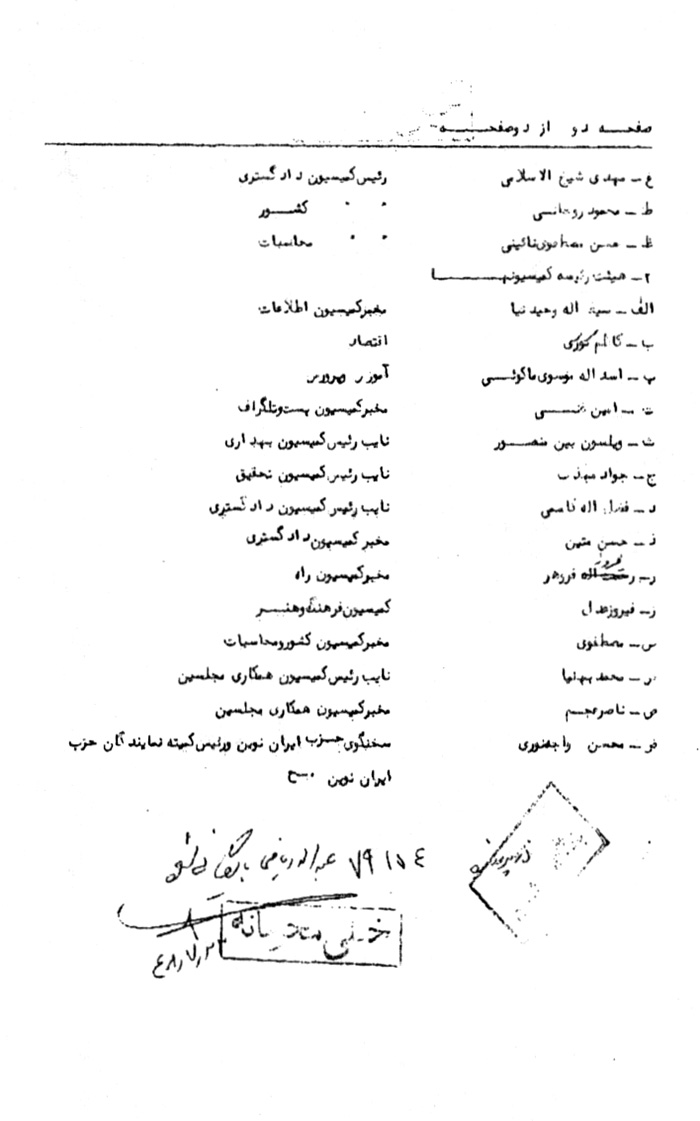 صفحه دو از دو صفحه
غ - مهدی شیخ الاسلامی رئیس کمیسیون دادگستری
ط - محمود روحانی " " کشور
ظ - حسن مصطفوی نائینی " " محاسبات
۲- هیئت رئیسه کمیسیونها
الف - سیف اله وحیدنیا مخبر کمیسیون اطلاعات
ب - کاظم کورس اقتصاد
پ - اسداله موسوی ماکوئی آموزش و پرورش
ت - امین مخبر کمیسیون پست و تلگراف
ث - ویلسون بین منصور نایب رئیس کمیسیون بهداری
ج - جواد مهذب نایب رئیس کمیسیون تحقیق
د - فضل اله قاسمی نایب رئیس کمیسیون دادگستری
ذ - حسن متین مخبر کمیسیون دادگستری
ر - فروهر مخبر کمیسیون راه
ز - فیروز عدل کمیسیون فرهنگ و هنر
س - مصطفوی مخبر کمیسیون کشور و محاسبات
محمد بهنیا نایب رئیس کمیسیون همکاری مجلسین
ص - ناصر عجم مخبر کمیسیون همکاری مجلسین
محسن خواجه نوری سخنگوی حزب ایران نوین و رئیس کمیته نمایندگان حزب
ایران نوین
۷۹۱۵٤ عبداله ریاضی بایگانی شود
خیلی محرمانه